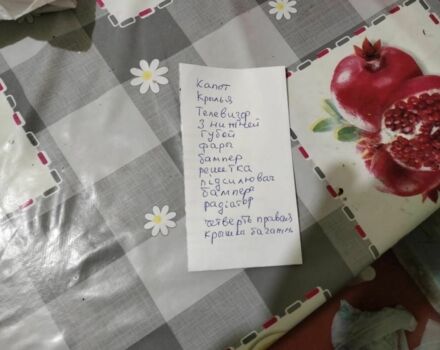 Капот
Крылья
Телевизор
з нижней
губой
фары
бампер
решетка
підсилювач
бампера
радіатор
четверть правая
крышка багажн